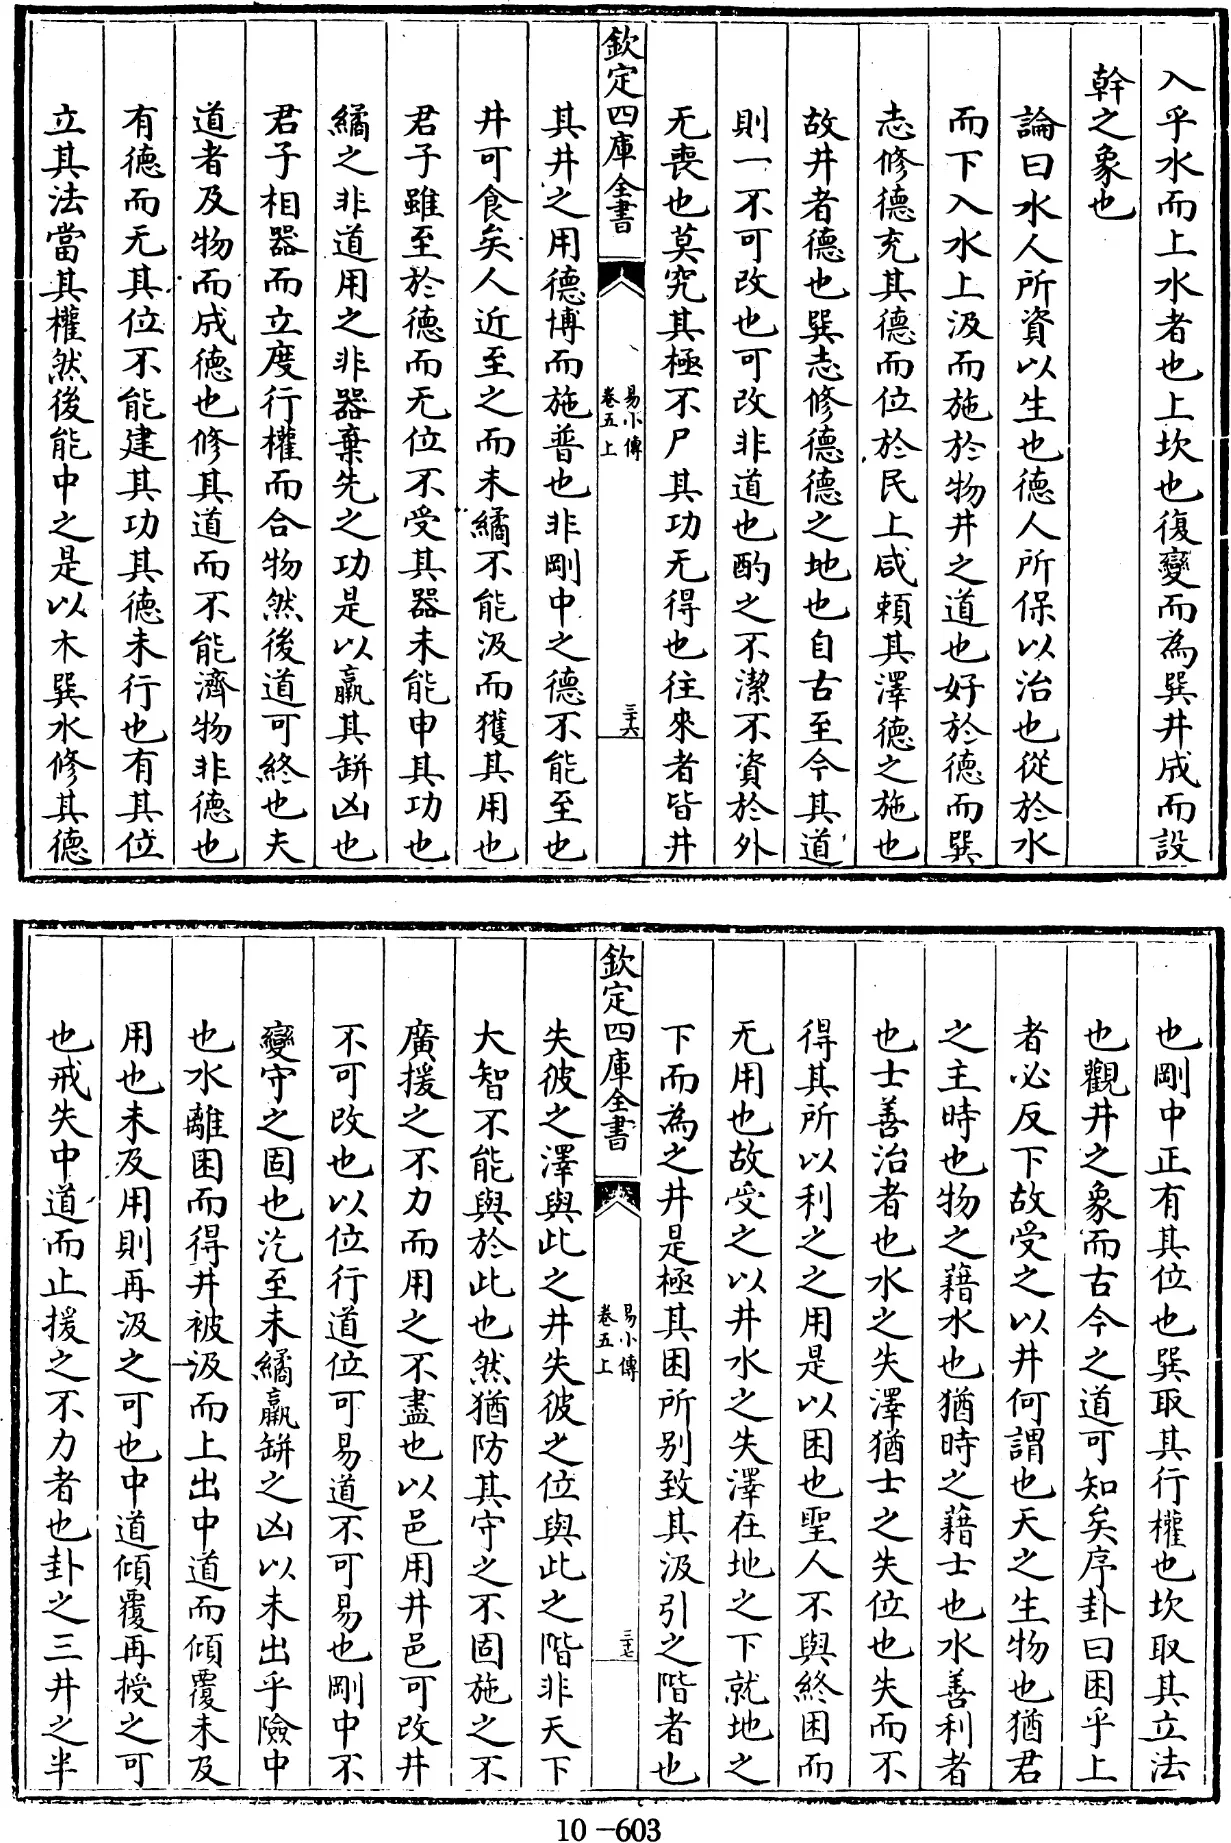 入乎水而上水者也上坎也復變而為巽井成而設
幹之象也
論曰水人所資以生也德人所保以治也從於水
而下入水上汲而施於物井之道也好於德而巽
志修德充其德而位於民上咸賴其澤德之施也
故井者德也巽志修德德之地也自古至今其道
則一不可改也可改非道也酌之不潔不資於外
无喪也莫究其極不尸其功无得也往來者皆井
欽定四庫全書
易小傳
卷五上
三十六
其井之用德博而施普也非剛中之德不能至也
井可食矣人近至之而未繘不能汲而獲其用也
君子雖至於德而无位不受其器未能申其功也
繘之非道用之非器棄先之功是以羸其缾凶也
君子相器而立度行權而合物然後道可終也夫
道者及物而成德也修其道而不能濟物非德也
有德而无其位不能建其功其德未行也有其位
立其法當其權然後能中之是以木巽水修其德
也剛中正有其位也巽取其行權也坎取其立法
也觀井之象而古今之道可知矣序卦曰困乎上
者必反下故受之以井何謂也天之生物也猶君
之主時也物之藉水也猶時之藉士也水善利者
也士善治者也水之失澤猶士之失位也失而不
得其所以利之之用是以困也聖人不與終困而
无用也故受之以井水之失澤在地之下就地之
下而為之井是極其困所別致其汲引之階者也
欽定四庫全書
易小傳
卷五上
三十七
失彼之澤與此之井失彼之位與此之階非天下
大智不能與於此也然猶防其守之不固施之不
廣援之不力而用之不盡也以邑用井邑可改井
不可改也以位行道位可易道不可易也剛中不
變守之固也汔至未繘羸缾之凶以未出乎險中
也水離困而得井被汲而上出中道而傾覆未及
用也未及用則再汲之可也中道傾覆再授之可
也戒失中道而止援之不力者也卦之三井之半
10-603